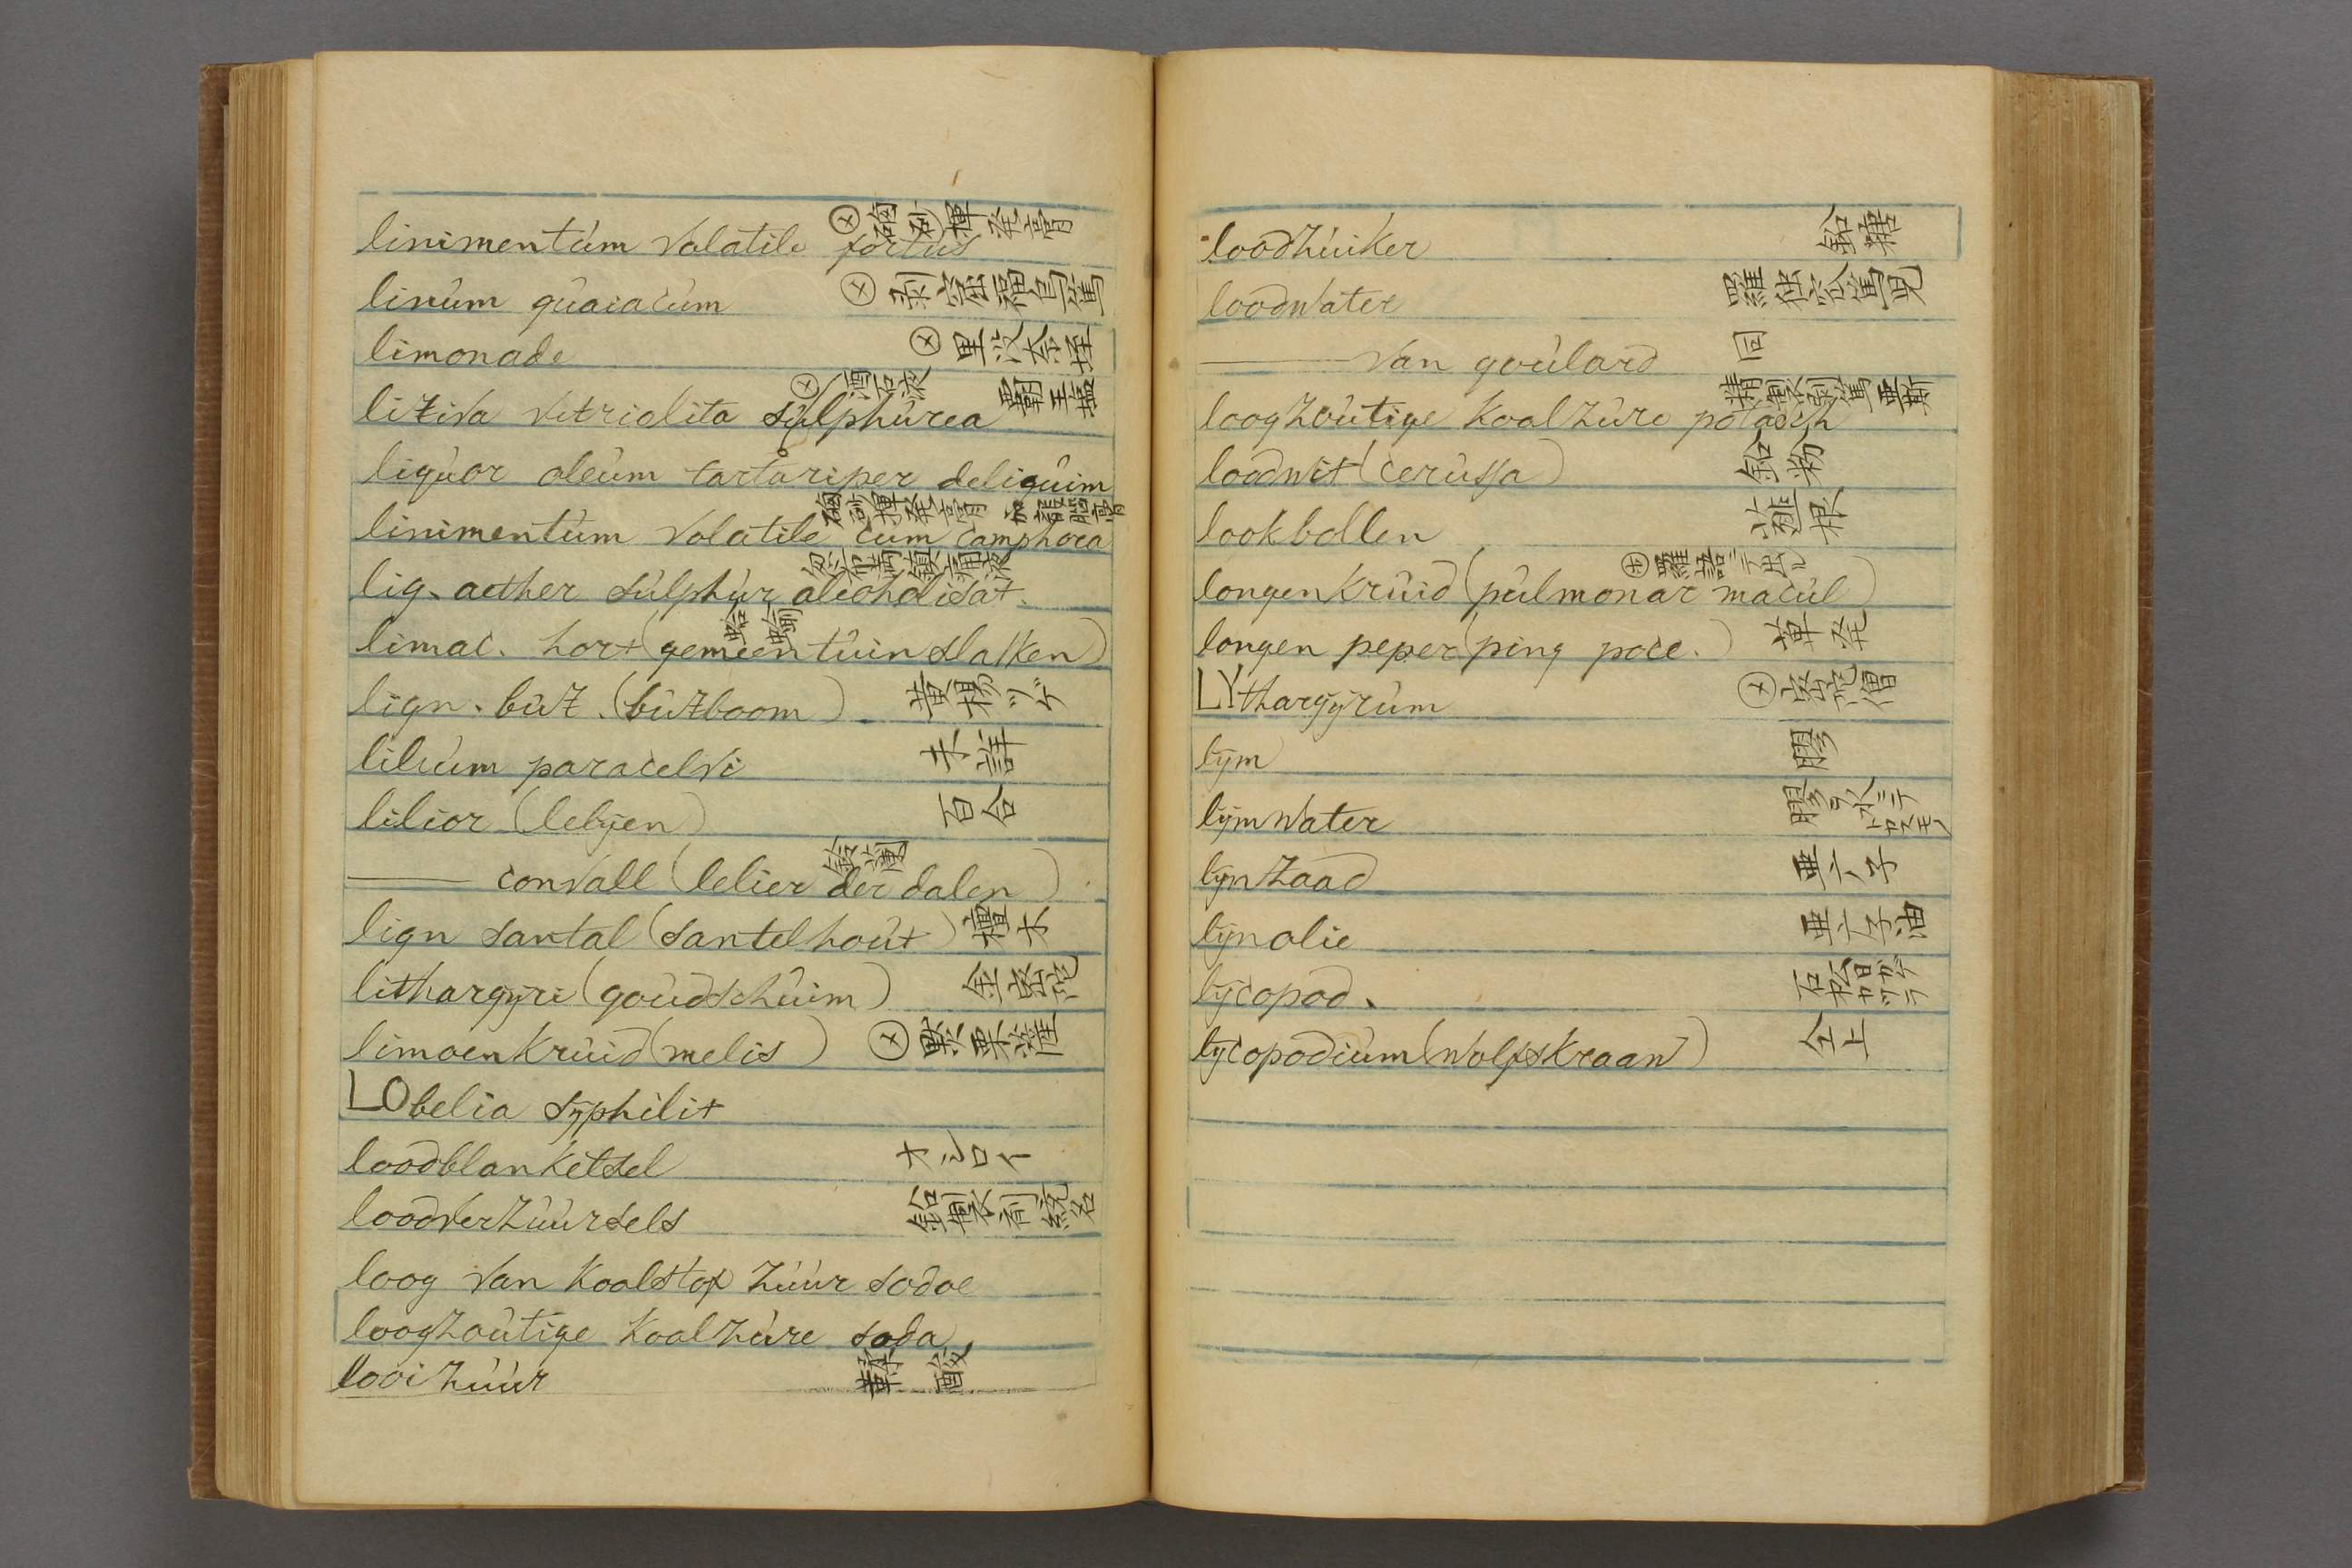 linimentúm volatile fortús ⓧ 磠砂揮発膏
linúm gúaiacúm ⓧ
limonade ⓧ 里没奈垤
lixiva vitriolita súlphúrea ⓧ 酒石液 覇王塩
liqúor oleúm tartariper deliqúim
linimentúm volatile cum camphora 磠砂揮発膏 加龍脳膏
liq. aether súlphúr alcoholisat.
limac. hort (gemeen túin slakken) 蛞蝓
lign. búx. (búxboom) 黄楊ツゲ
liliúm paracelsi 未詳
lilior (lelijen) 百合
—— convall (lelier der dalen) 鈴蘭
lign santal (santelhoút) 檀木
lithargÿri (goúdschúim) 金密陀
limoenkrúid (melis) ⓧ
LObelia sÿphilit
loodblanketsel オシロイ
loodverzúúrsels 鉛製剤統名
loog van koolstof zúúr sodae
loogzoútige koolzúre soda
looizúúr 鞣酸
loodzúiker 鉛糖
loodwater
—— van goúlard 同
loogzoútige koolzúre potasch 精製剥篤亜斯
loodwit (cerússa) 鉛粉
lookbollen 韮根
longenkrúid (púlmonar macúl)
longen peper (ping poce.) 蓽発
LYthargÿrúm ⓧ 密陀僧
lÿm 膠
lÿmwater 膠ヲ水ニテトカスモノ
lÿnzaad 亜麻子
lÿnolie 亜麻子油
lÿcopod. 石松 日カゲカツラ
lÿcopodiúm (wolfskraaw) 仝上